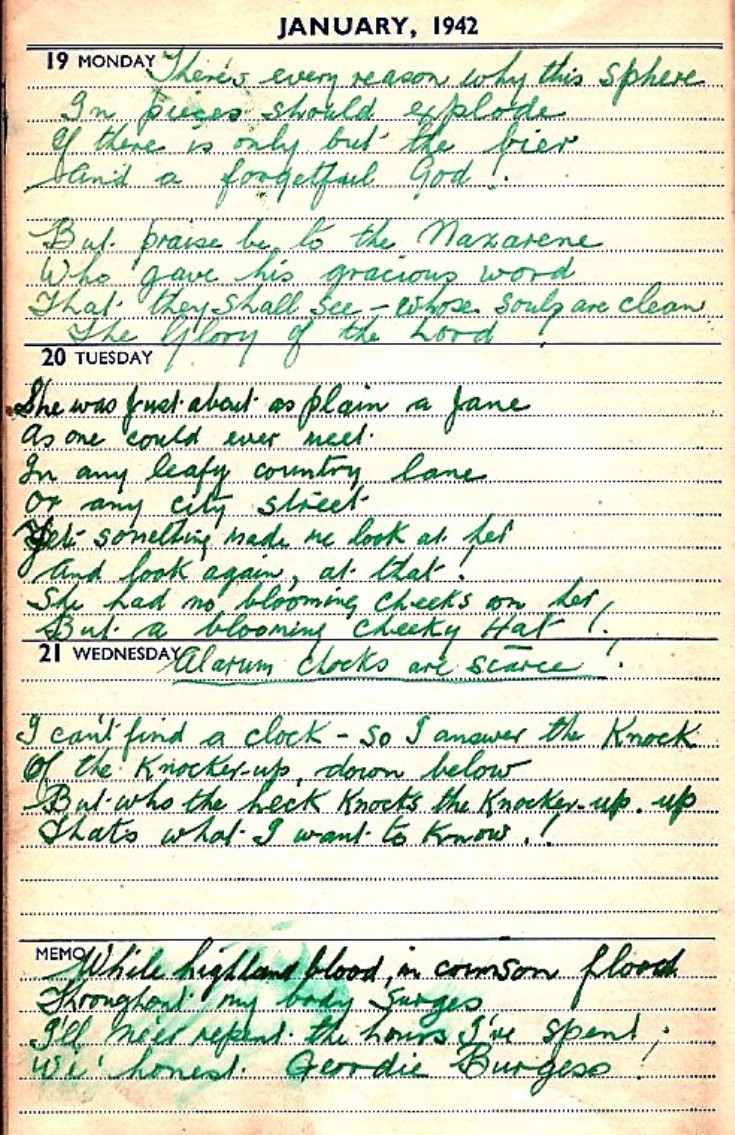 JANUARY, 1942
19 MONDAY There's every reason why this sphere
In pieces should explode
If there is only but the bier
And a forgetful God!
But praise be to the Nazarene
Who gave his gracious word
That they shall see - whose souls are clean
The Glory of the Lord
20 TUESDAY
She was just about as plain a Jane
As one could ever meet
In any leafy country lane
Or any city street
Yet something made me look at her
And look again, at that!
She had no blooming cheeks on her,
But a blooming cheeky Hat!
21 WEDNESDAY Alarum clocks are scarce!
I can't find a clock - so I answer the Knock
Of the Knocker-up, down below
But who the heck Knocks the Knocker-up. up
Thats what I want to Know.!
MEMO While highland blood, in comson flood
Throughout my body Surges
I'll ne'er repent the hours I've spent,
Wi' honest Geordie Burgess!